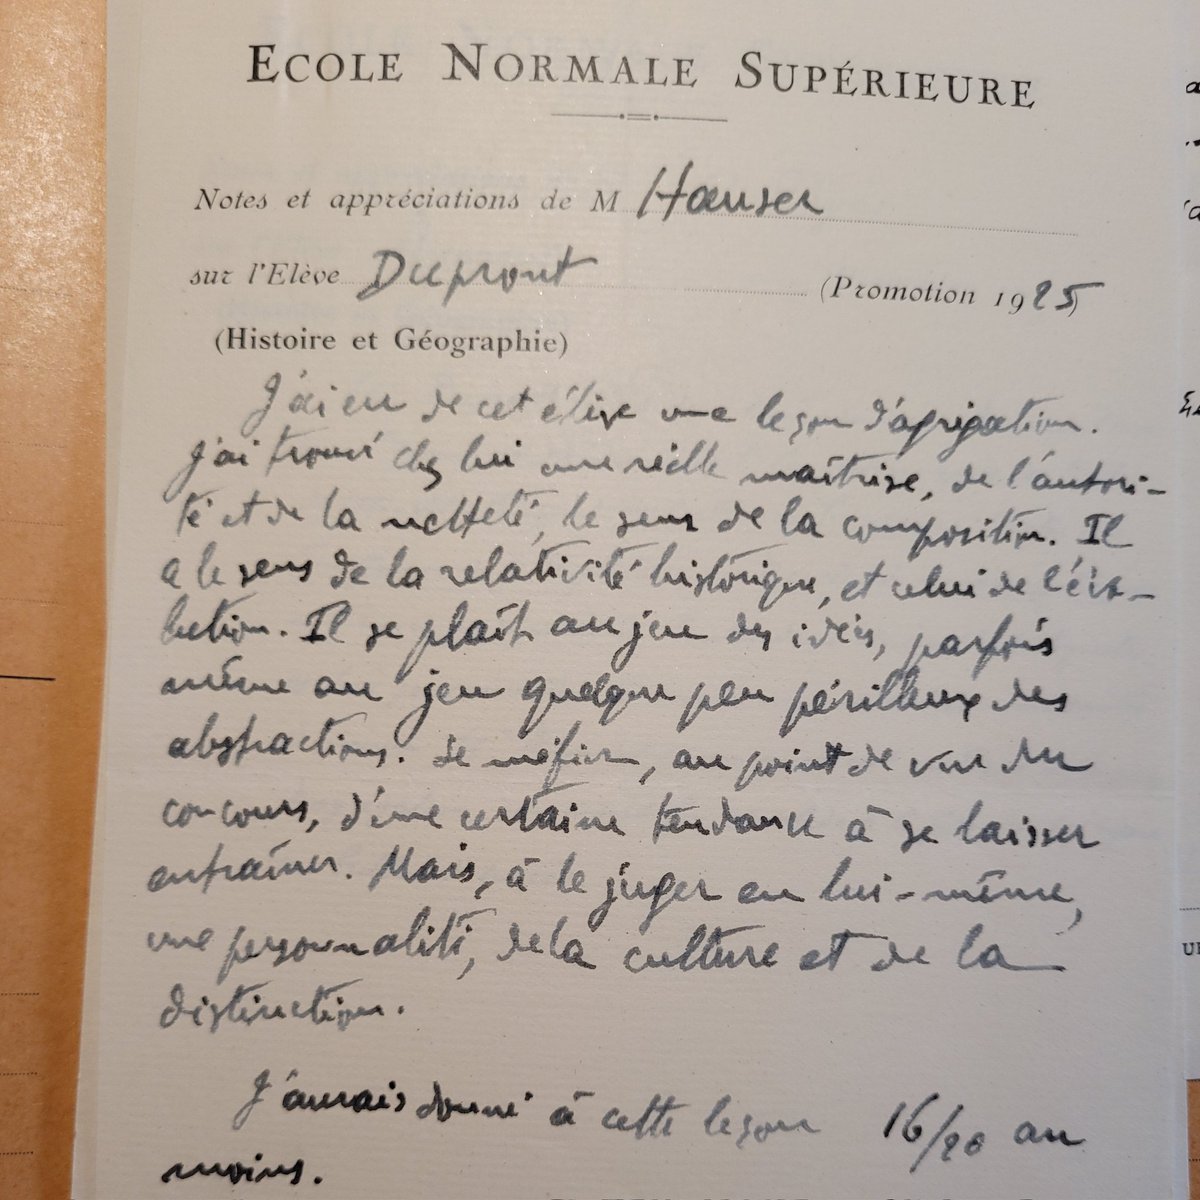 ECOLE NORMALE SUPÉRIEURE
Notes et appréciations de M Hauser
sur l'Elève Dupront (Promotion 1925)
(Histoire et Géographie)
J'ai eu de cet élève une leçon d'agrégation.
J'ai trouvé chez lui une réelle maîtrise, de l'autori-
té et de la netteté, le sens de la composition. Il
a le sens de la relativité historique, et celui de l'évo-
lution. Il se plaît au jeu des idées, parfois
même au jeu quelque peu périlleux des
abstractions. Se méfier, au point de vue du
concours, d'une certaine tendance à se laisser
entraîner. Mais, à le juger en lui-même,
une personnalité, de la culture et de la
distinction.
J'aurais donné à cette leçon 16/20 au
moins.